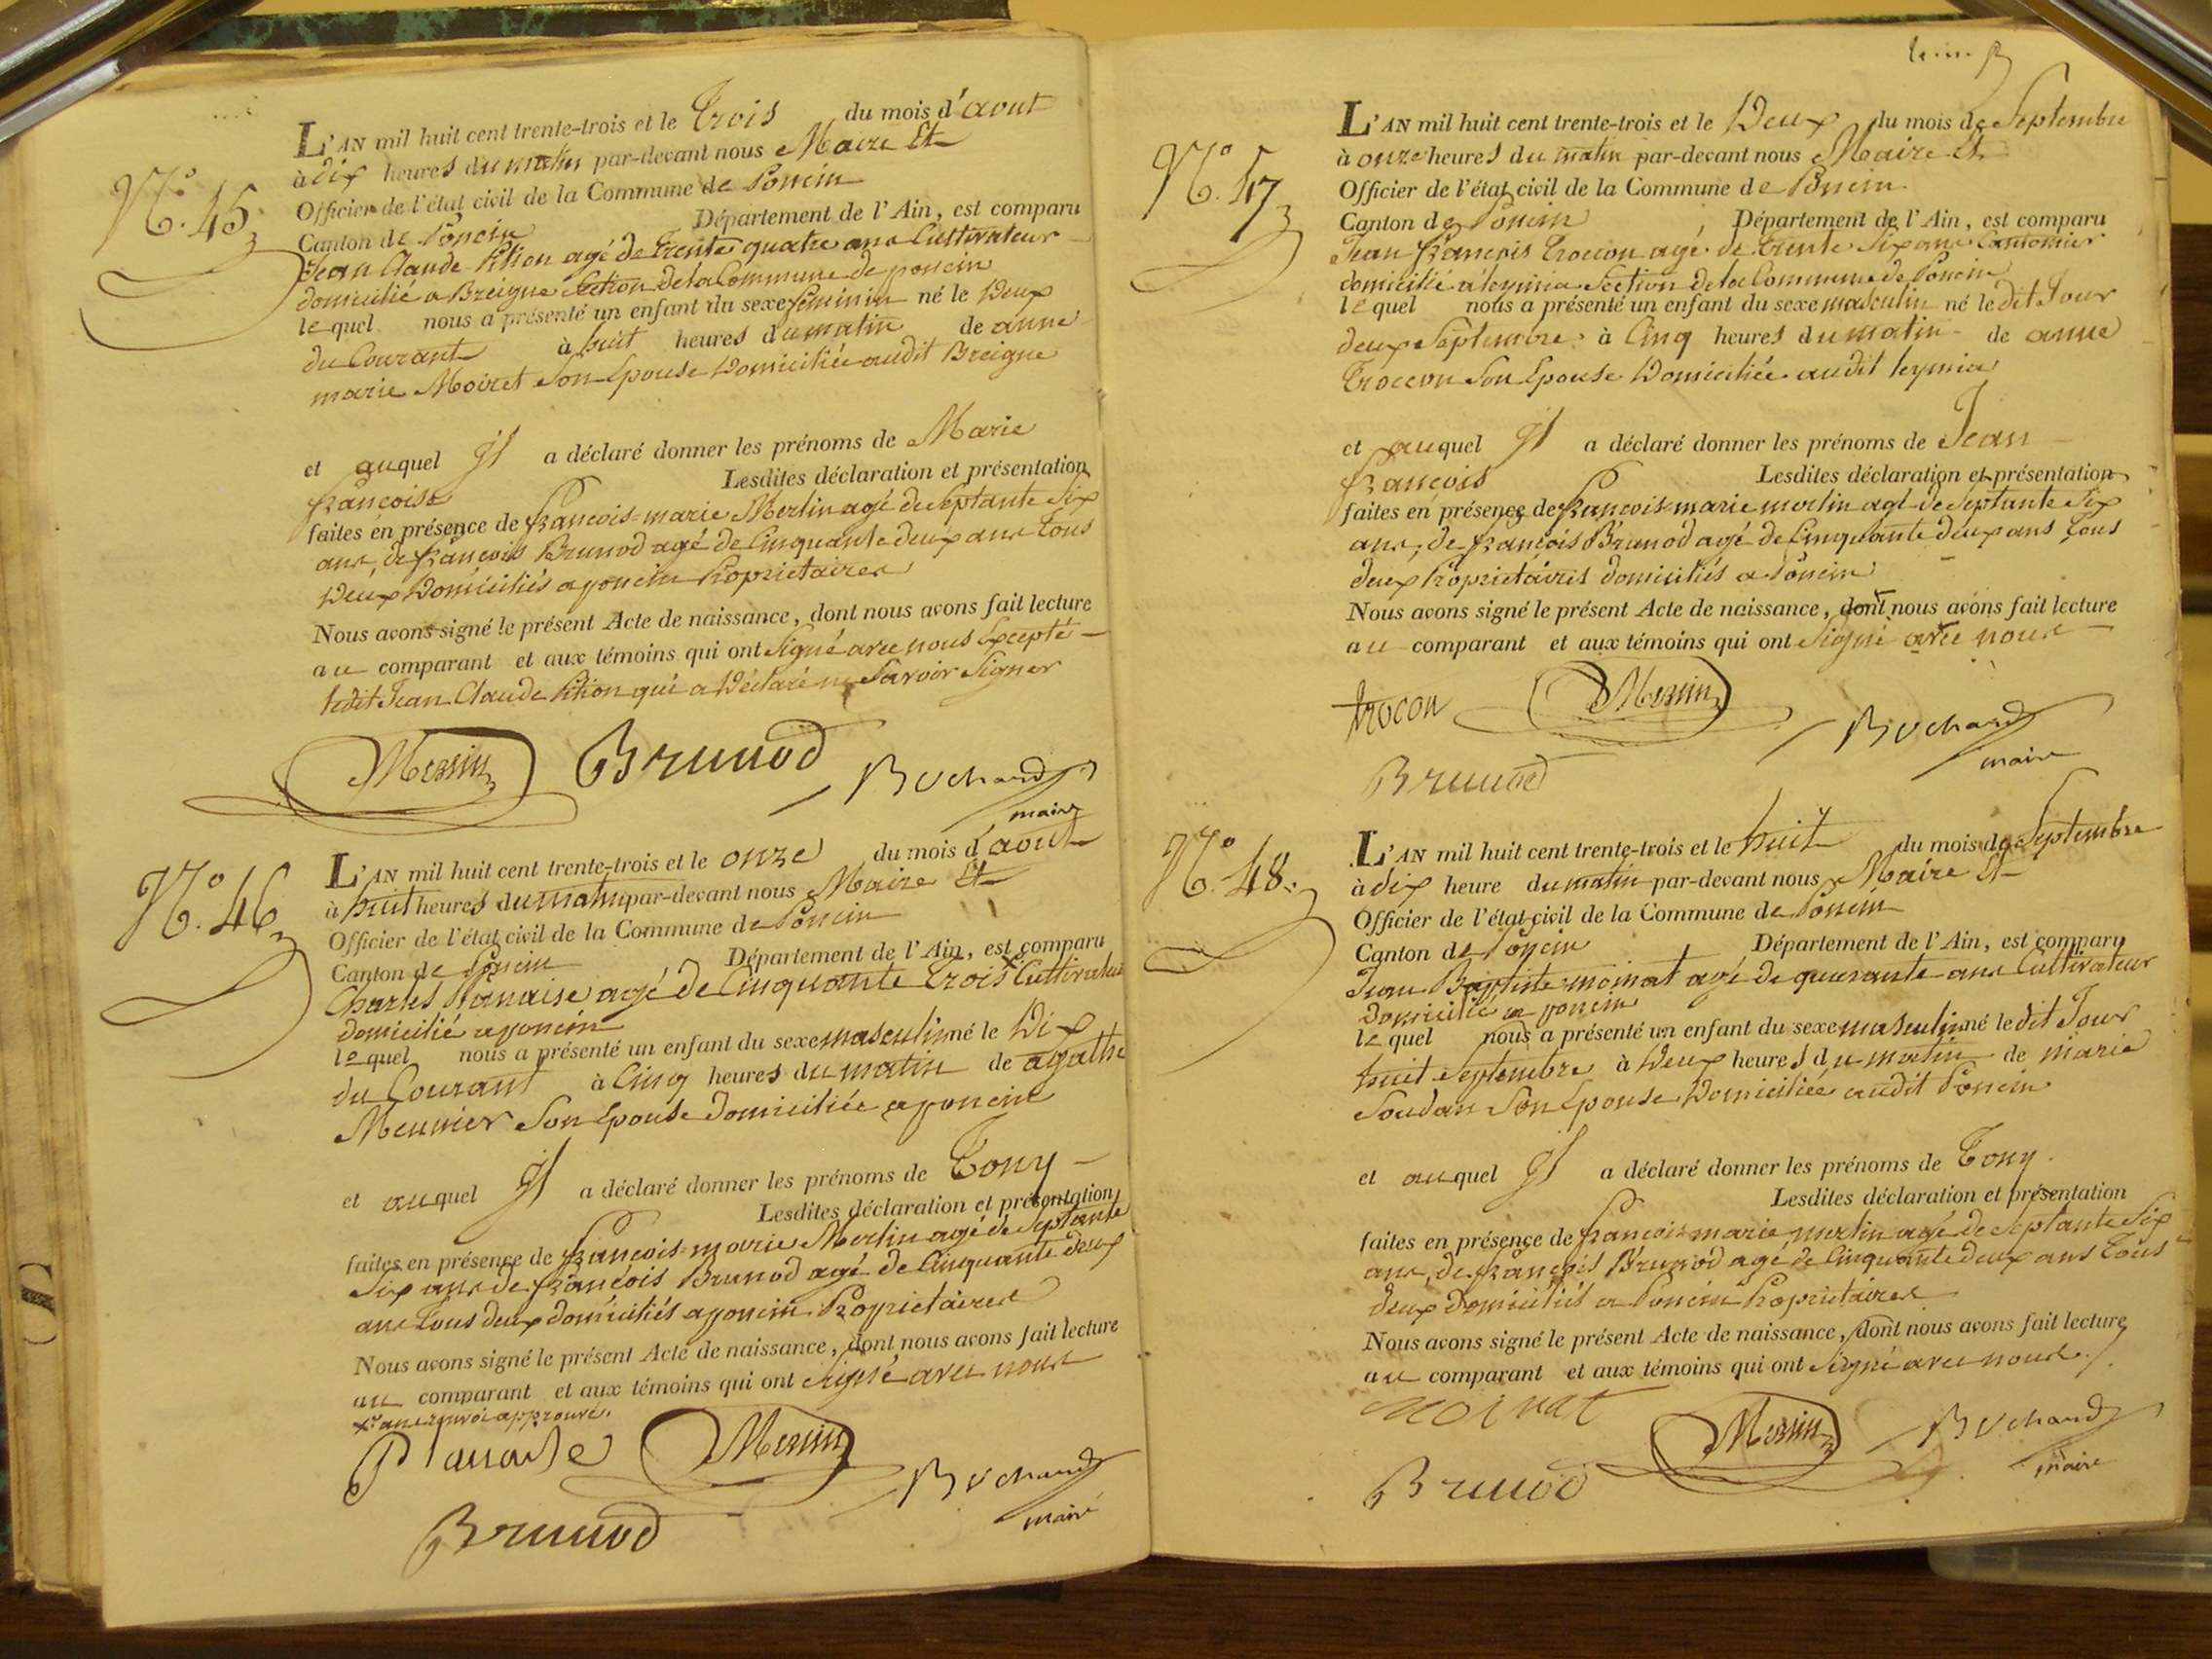 N.° 45.
L'AN mil huit cent trente-trois et le Trois du mois d'aout
à dix heures du matin par-devant nous Maire Et
Officier de l'état civil de la Commune de Poncin
Canton de Poncin Département de l'Ain, est comparu
Jean Claude Pition agé de Trente quatre ans Cultivateur
domicilié a Breigne Section de la Commune de poncin
lequel nous a présenté un enfant du sexe feminin né le Deux
du Courant à huit heures du matin de anne
marie Moiret Son Epouse Domiciliée audit Breigne
et auquel Il a déclaré donner les prénoms de Marie
francoise Lesdites déclaration et présentation
faites en présence de francois-marie Merlin agé de Septante Six
ans, de francois Brunod agé de Cinquante deux ans tous
Deux Domiciliés a poncin Proprietaires
Nous avons signé le présent Acte de naissance, dont nous avons fait lecture
au comparant et aux témoins qui ont Signé avec nous Excepté
ledit Jean Claude Pition qui a Déclaré ne Savoir Signer
Merlin Brunod Bochard
maire
N.° 46
L'AN mil huit cent trente-trois et le onze du mois d'aout
à huit heures du matin par-devant nous Maire Et
Officier de l'état civil de la Commune de Poncin
Canton de Poncin Département de l'Ain, est comparu
Charles Panaise agé de Cinquante Trois Cultivateur
domicilié a poncin
lequel nous a présenté un enfant du sexe masculin né le Dix
du Courant à Cinq heures du matin de agathe
Meunier Son Epouse domiciliée a poncin
et auquel Il a déclaré donner les prénoms de Tony
Lesdites déclaration et présentation
faites en présence de francois-marie Merlin agé de Septante
Six ans de francois Brunod agé de Cinquante deux
ans Tous deux domiciliés a poncin Proprietaires
Nous avons signé le présent Acte de naissance, dont nous avons fait lecture
au comparant et aux témoins qui ont Signé avec nous
x ans renvoi approuvé.
Merlin
Bochard
maire
Brunod
N.° 47
L'AN mil huit cent trente-trois et le Deux du mois de Septembre
à onze heures du matin par-devant nous Maire Et
Officier de l'état civil de la Commune de Poncin
Canton de Poncin Département de l'Ain, est comparu
Jean francois Troccon agé de trente Six ans Cantonnier
domicilié a leymia Section de la Commune de Poncin
lequel nous a présenté un enfant du sexe masculin né le dit Jour
deux Septembre à Cinq heures du matin de anne
Troccon Son Epouse Domiciliée audit leymia
et auquel Il a déclaré donner les prénoms de Jean
francois Lesdites déclaration et présentation
faites en présence de francois-marie merlin agé de Septante Six
ans, de francois Brunod agé de Cinquante deux ans Tous
deux Proprietaires domiciliés a Poncin
Nous avons signé le présent Acte de naissance, dont nous avons fait lecture
au comparant et aux témoins qui ont Signé avec nous
trocon Merlin Bochard
maire
Brunod
N.° 48.
L'AN mil huit cent trente-trois et le huit du mois de Septembre
à dix heure du matin par-devant nous Maire Et
Officier de l'état civil de la Commune de Poncin
Canton de Poncin Département de l'Ain, est comparu
Jean Baptiste moinat agé de quarante ans Cultivateur
Domicilié a poncin
lequel nous a présenté un enfant du sexe masculin né le dit Jour
huit Septembre à Deux heures du matin de marie
Soudan Son Epouse Domiciliée audit Poncin
et auquel Il a déclaré donner les prénoms de Tony.
Lesdites déclaration et présentation
faites en présence de francois marie merlin agé de Septante Six
ans, de francois Brunod agé de Cinquante deux ans Tous
deux Domiciliés a Poncin Proprietaires
Nous avons signé le présent Acte de naissance, dont nous avons fait lecture
au comparant et aux témoins qui ont Signé avec nous.
moinat Merlin Bochard
maire
Brunod